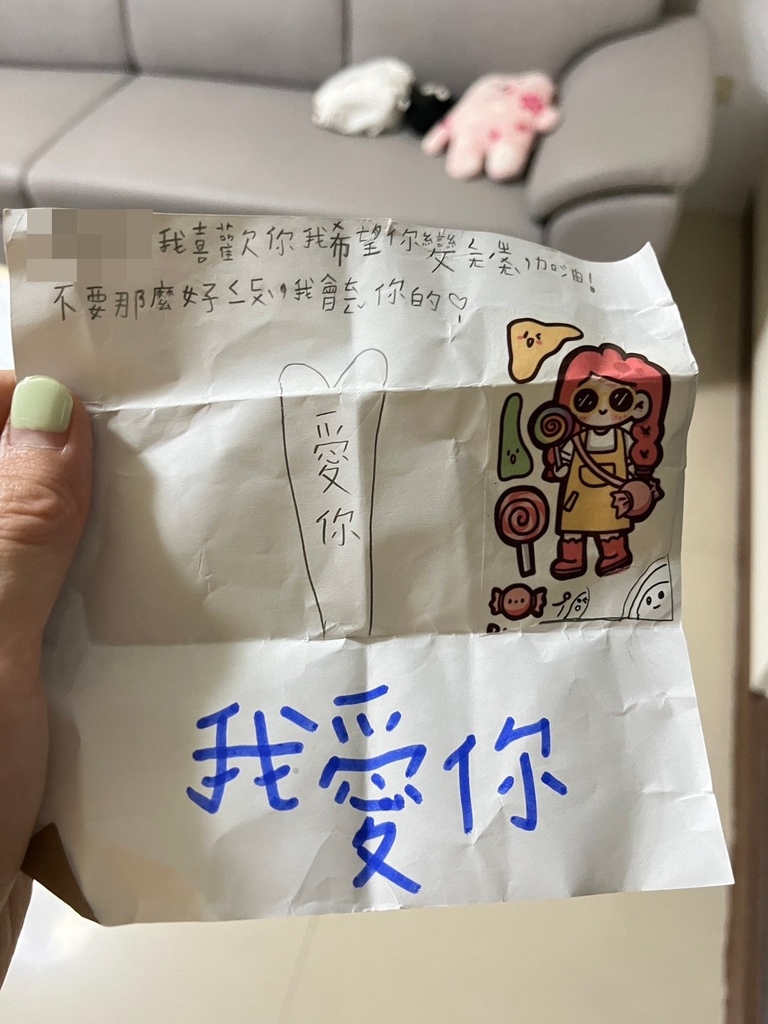 我喜歡你我希望你變 ,加油!
不要那麼好 ,我會 你的♡
愛
你
我愛你